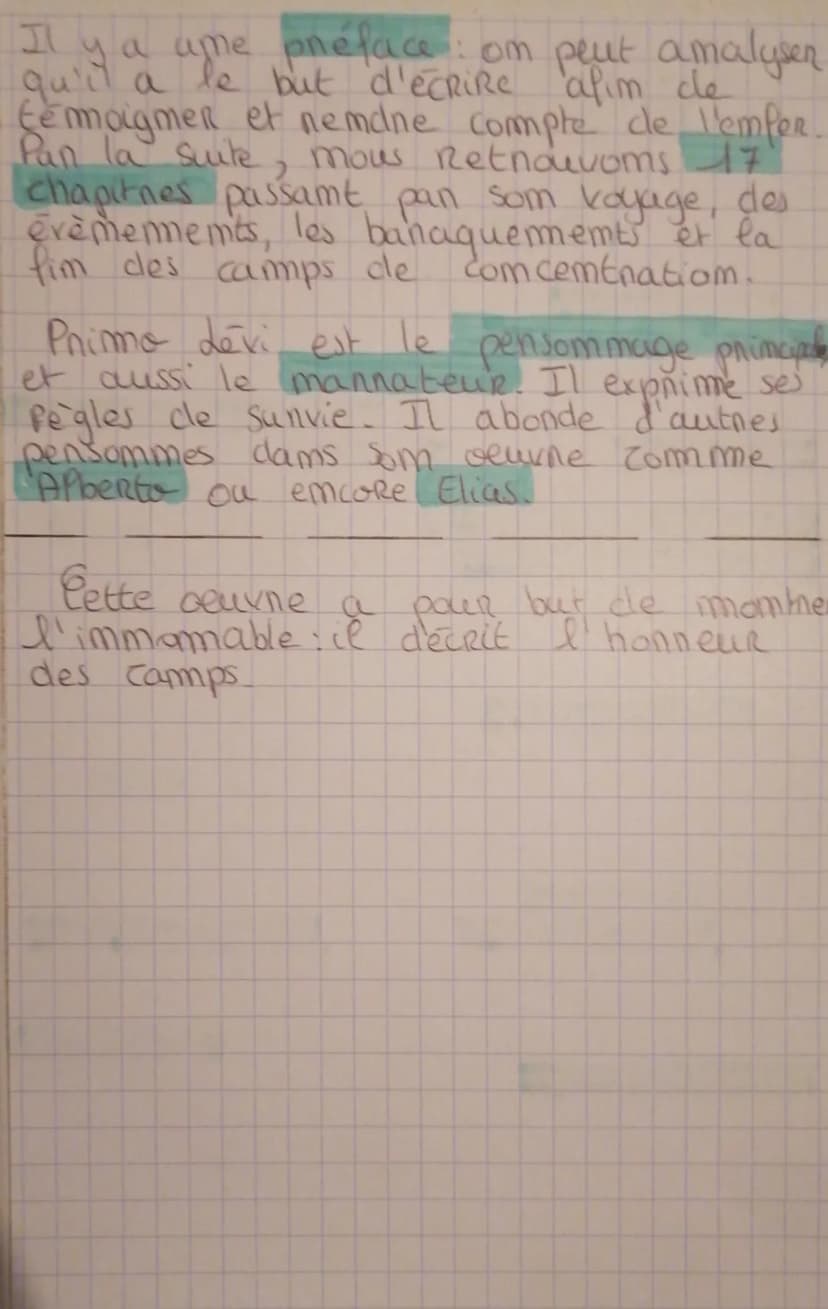 Il y a une préface : on peut analyser
qu'il a le but d'écrire afin de
témoigner et rendre compte de l'enfer.
Par la suite, nous retrouvons 17
chapitres passant par son voyage, des
évènements, les baraquements et la
fin des camps de concentration.
Primo Lévi est le personnage principal
et aussi le narrateur. Il exprime ses
règles de survie. Il abonde d'autres
personnes dans son oeuvre comme
Alberto ou encore Elias.
Cette oeuvre a pour but de montrer
l'innarrable : il décrit l'horreur
des camps.